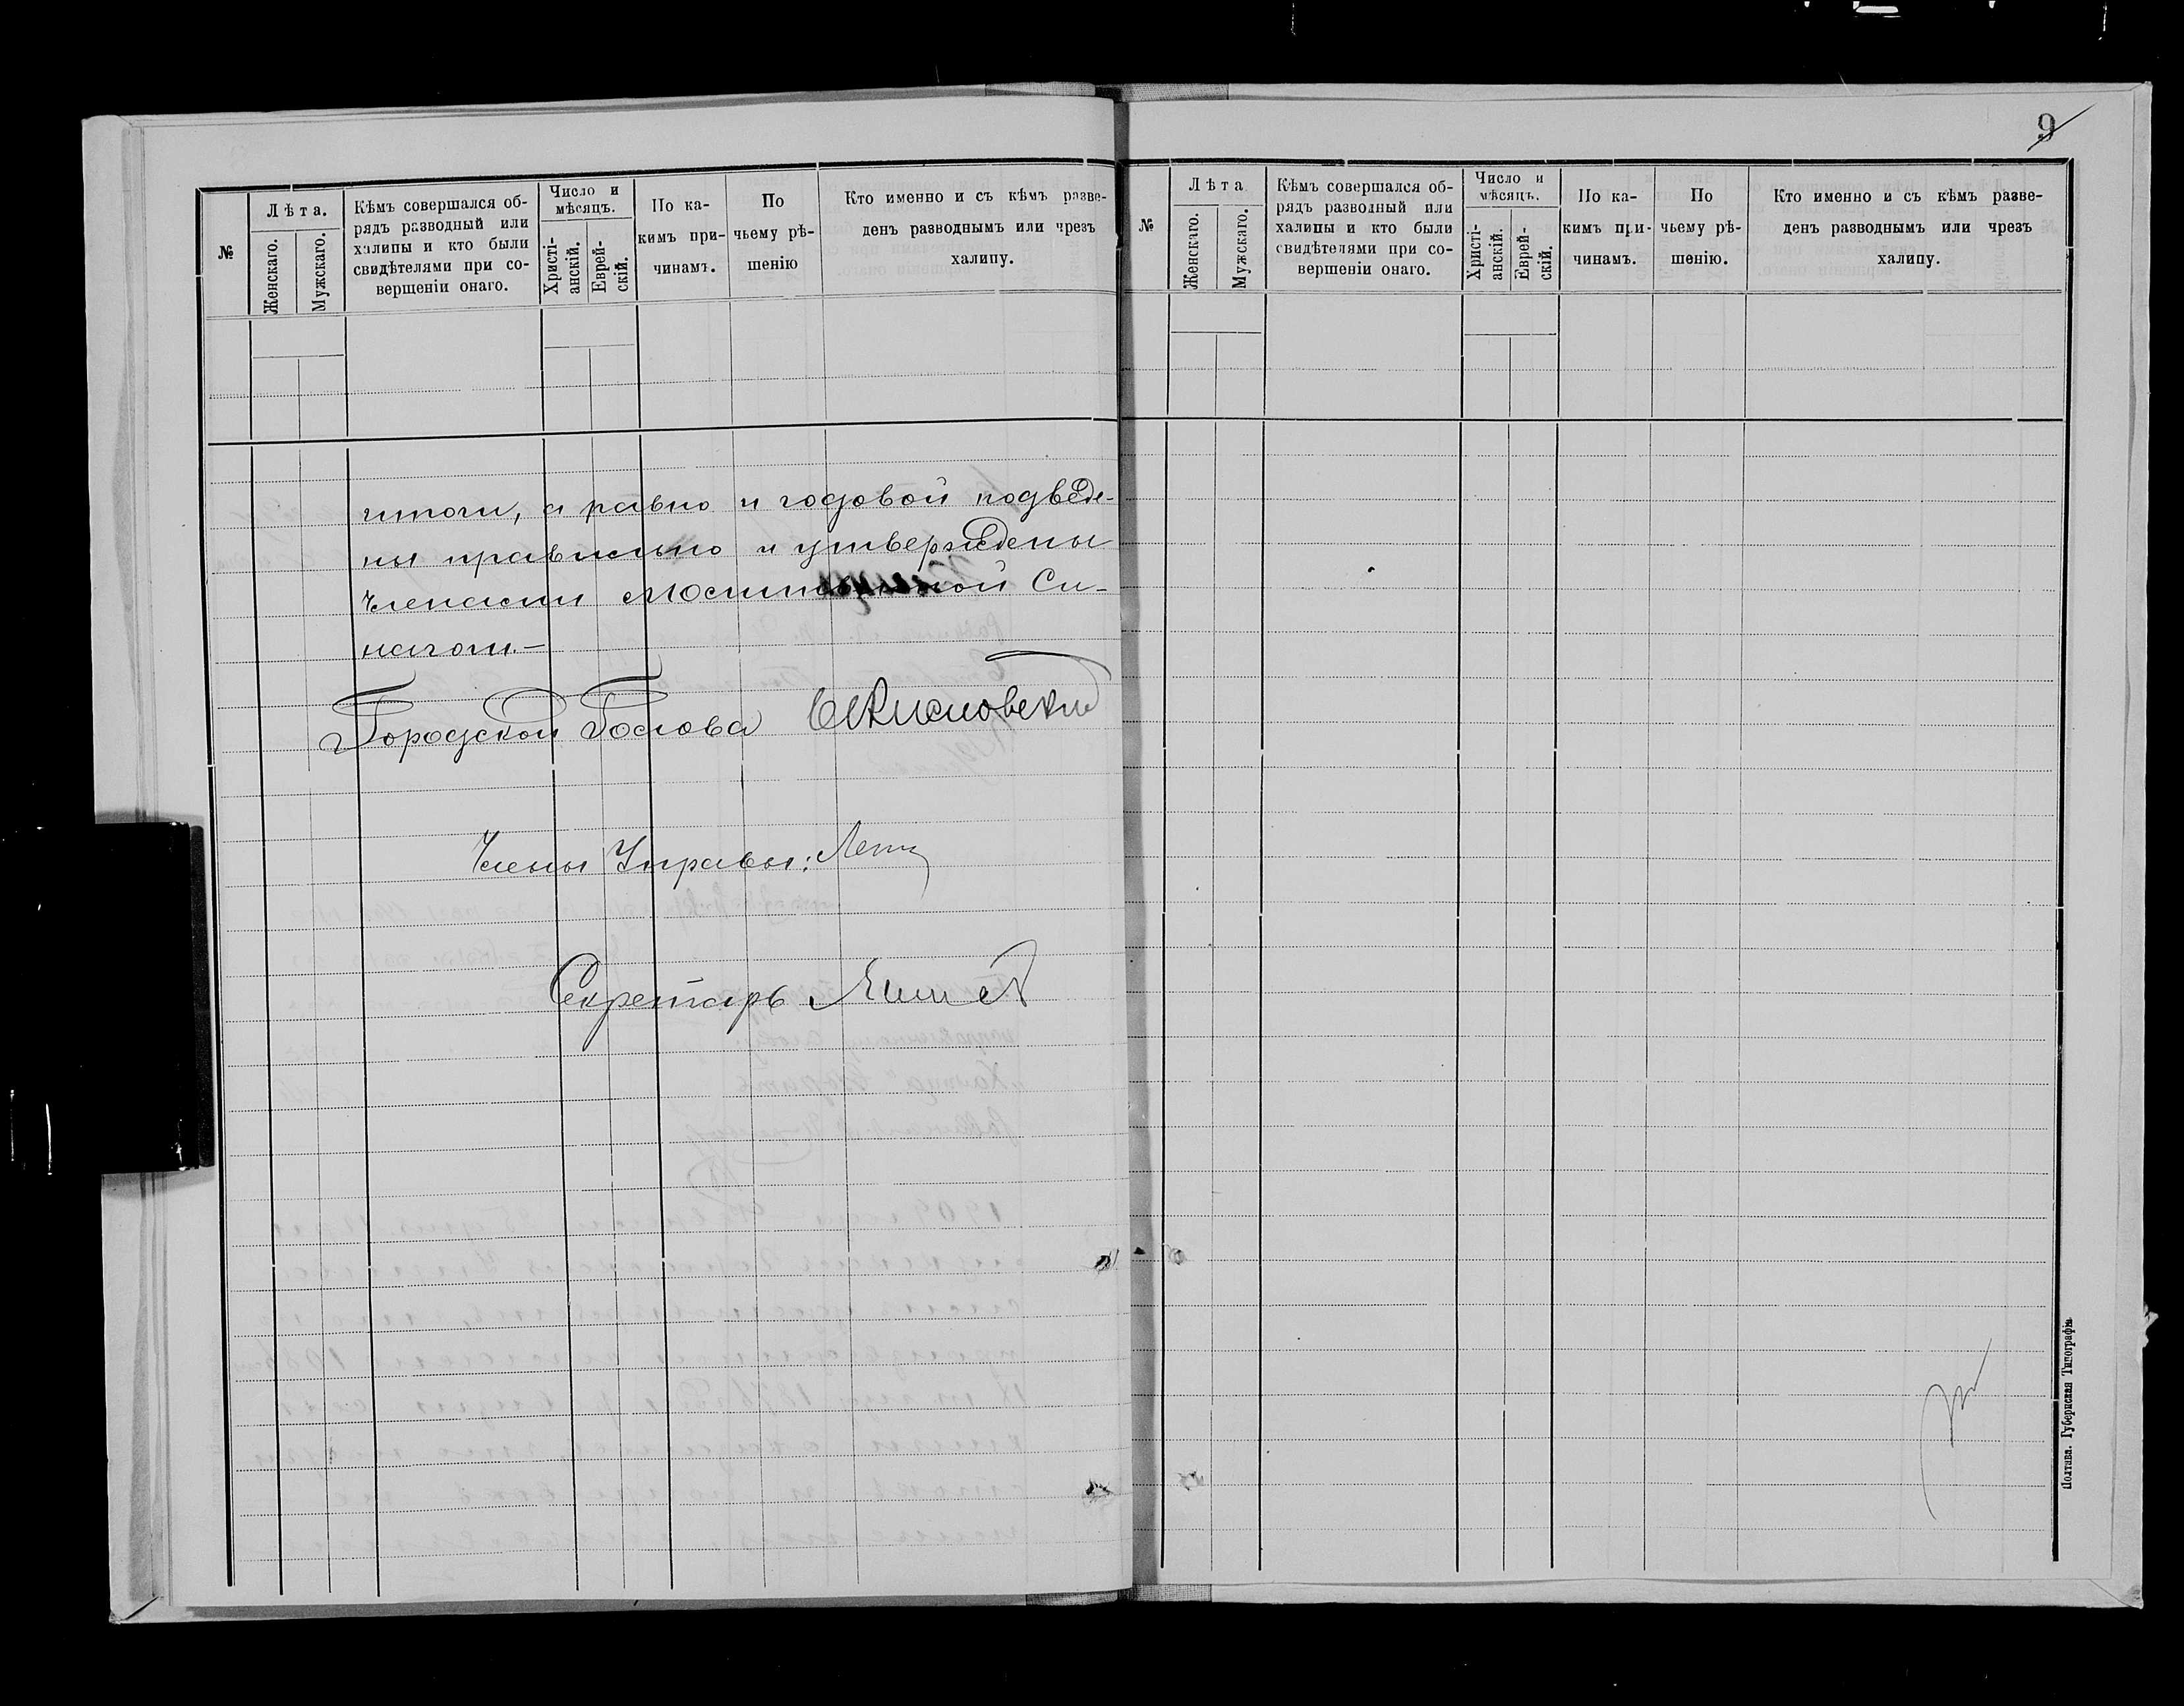 №
Лѣта.
Женскаго.
Мужскаго.
Кѣмъ совершался об-
рядъ разводный или
халипы и кто были
свидѣтелями при со-
вершеніи онаго.
Число и
мѣсяцъ.
Христі-
анскій.
Еврей-
скій.
По ка-
кимъ при-
чинамъ.
По
чьему рѣ-
шенію
Кто именно и съ кѣмъ разве-
денъ разводнымъ или чрезъ
халипу.
итоги, а равно и годовой подведе-
ны правильно и утверждены
Членами Молитвенной Си-
нагоги.—
Городской Голова
Члены Управы:
Секретарь
9
№
Лѣта
Женскаго.
Мужскаго.
Кѣмъ совершался об-
рядъ разводный или
халипы и кто были
свидѣтелями при со-
вершеніи онаго.
Число и
мѣсяцъ.
Христі-
анскій.
Еврей-
скій.
По ка-
кимъ при-
чинамъ.
По
чьему рѣ-
шенію.
Кто именно и съ кѣмъ разве-
денъ разводнымъ или чрезъ
халипу.
Полтава. Губернская Типографія.